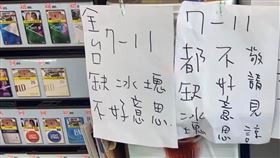 全台7-11
缺冰塊
不好意思
7-11
都缺冰塊
不好意思
敬請見諒